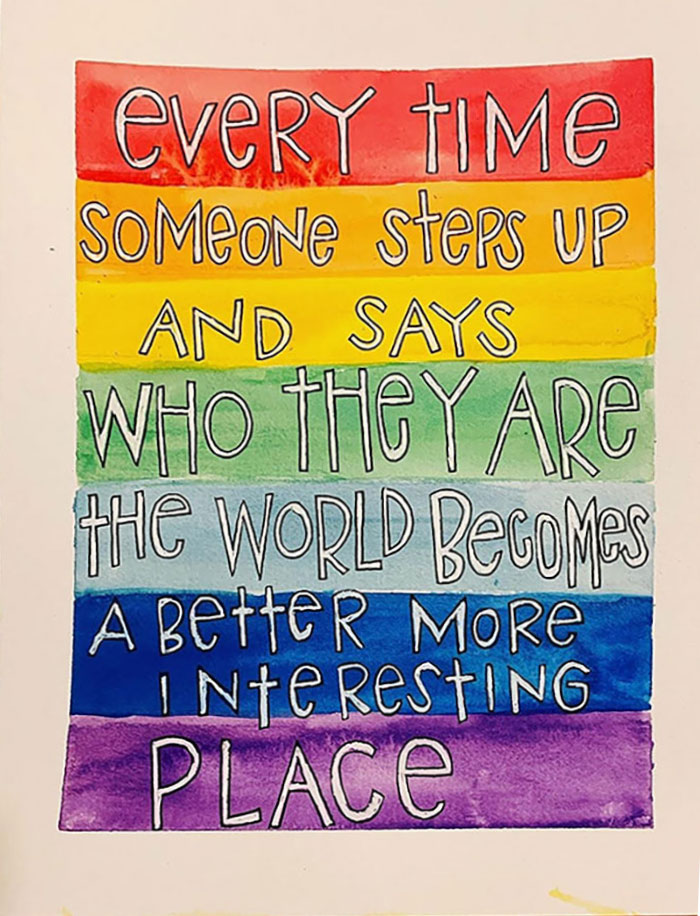 eVeRY tIMe
SOMeONe StePS UP
AND SAYS
WHO tHeY ARe
tHe WORLD BeCOMeS
A BetteR MORe
INteReStING
PLACe